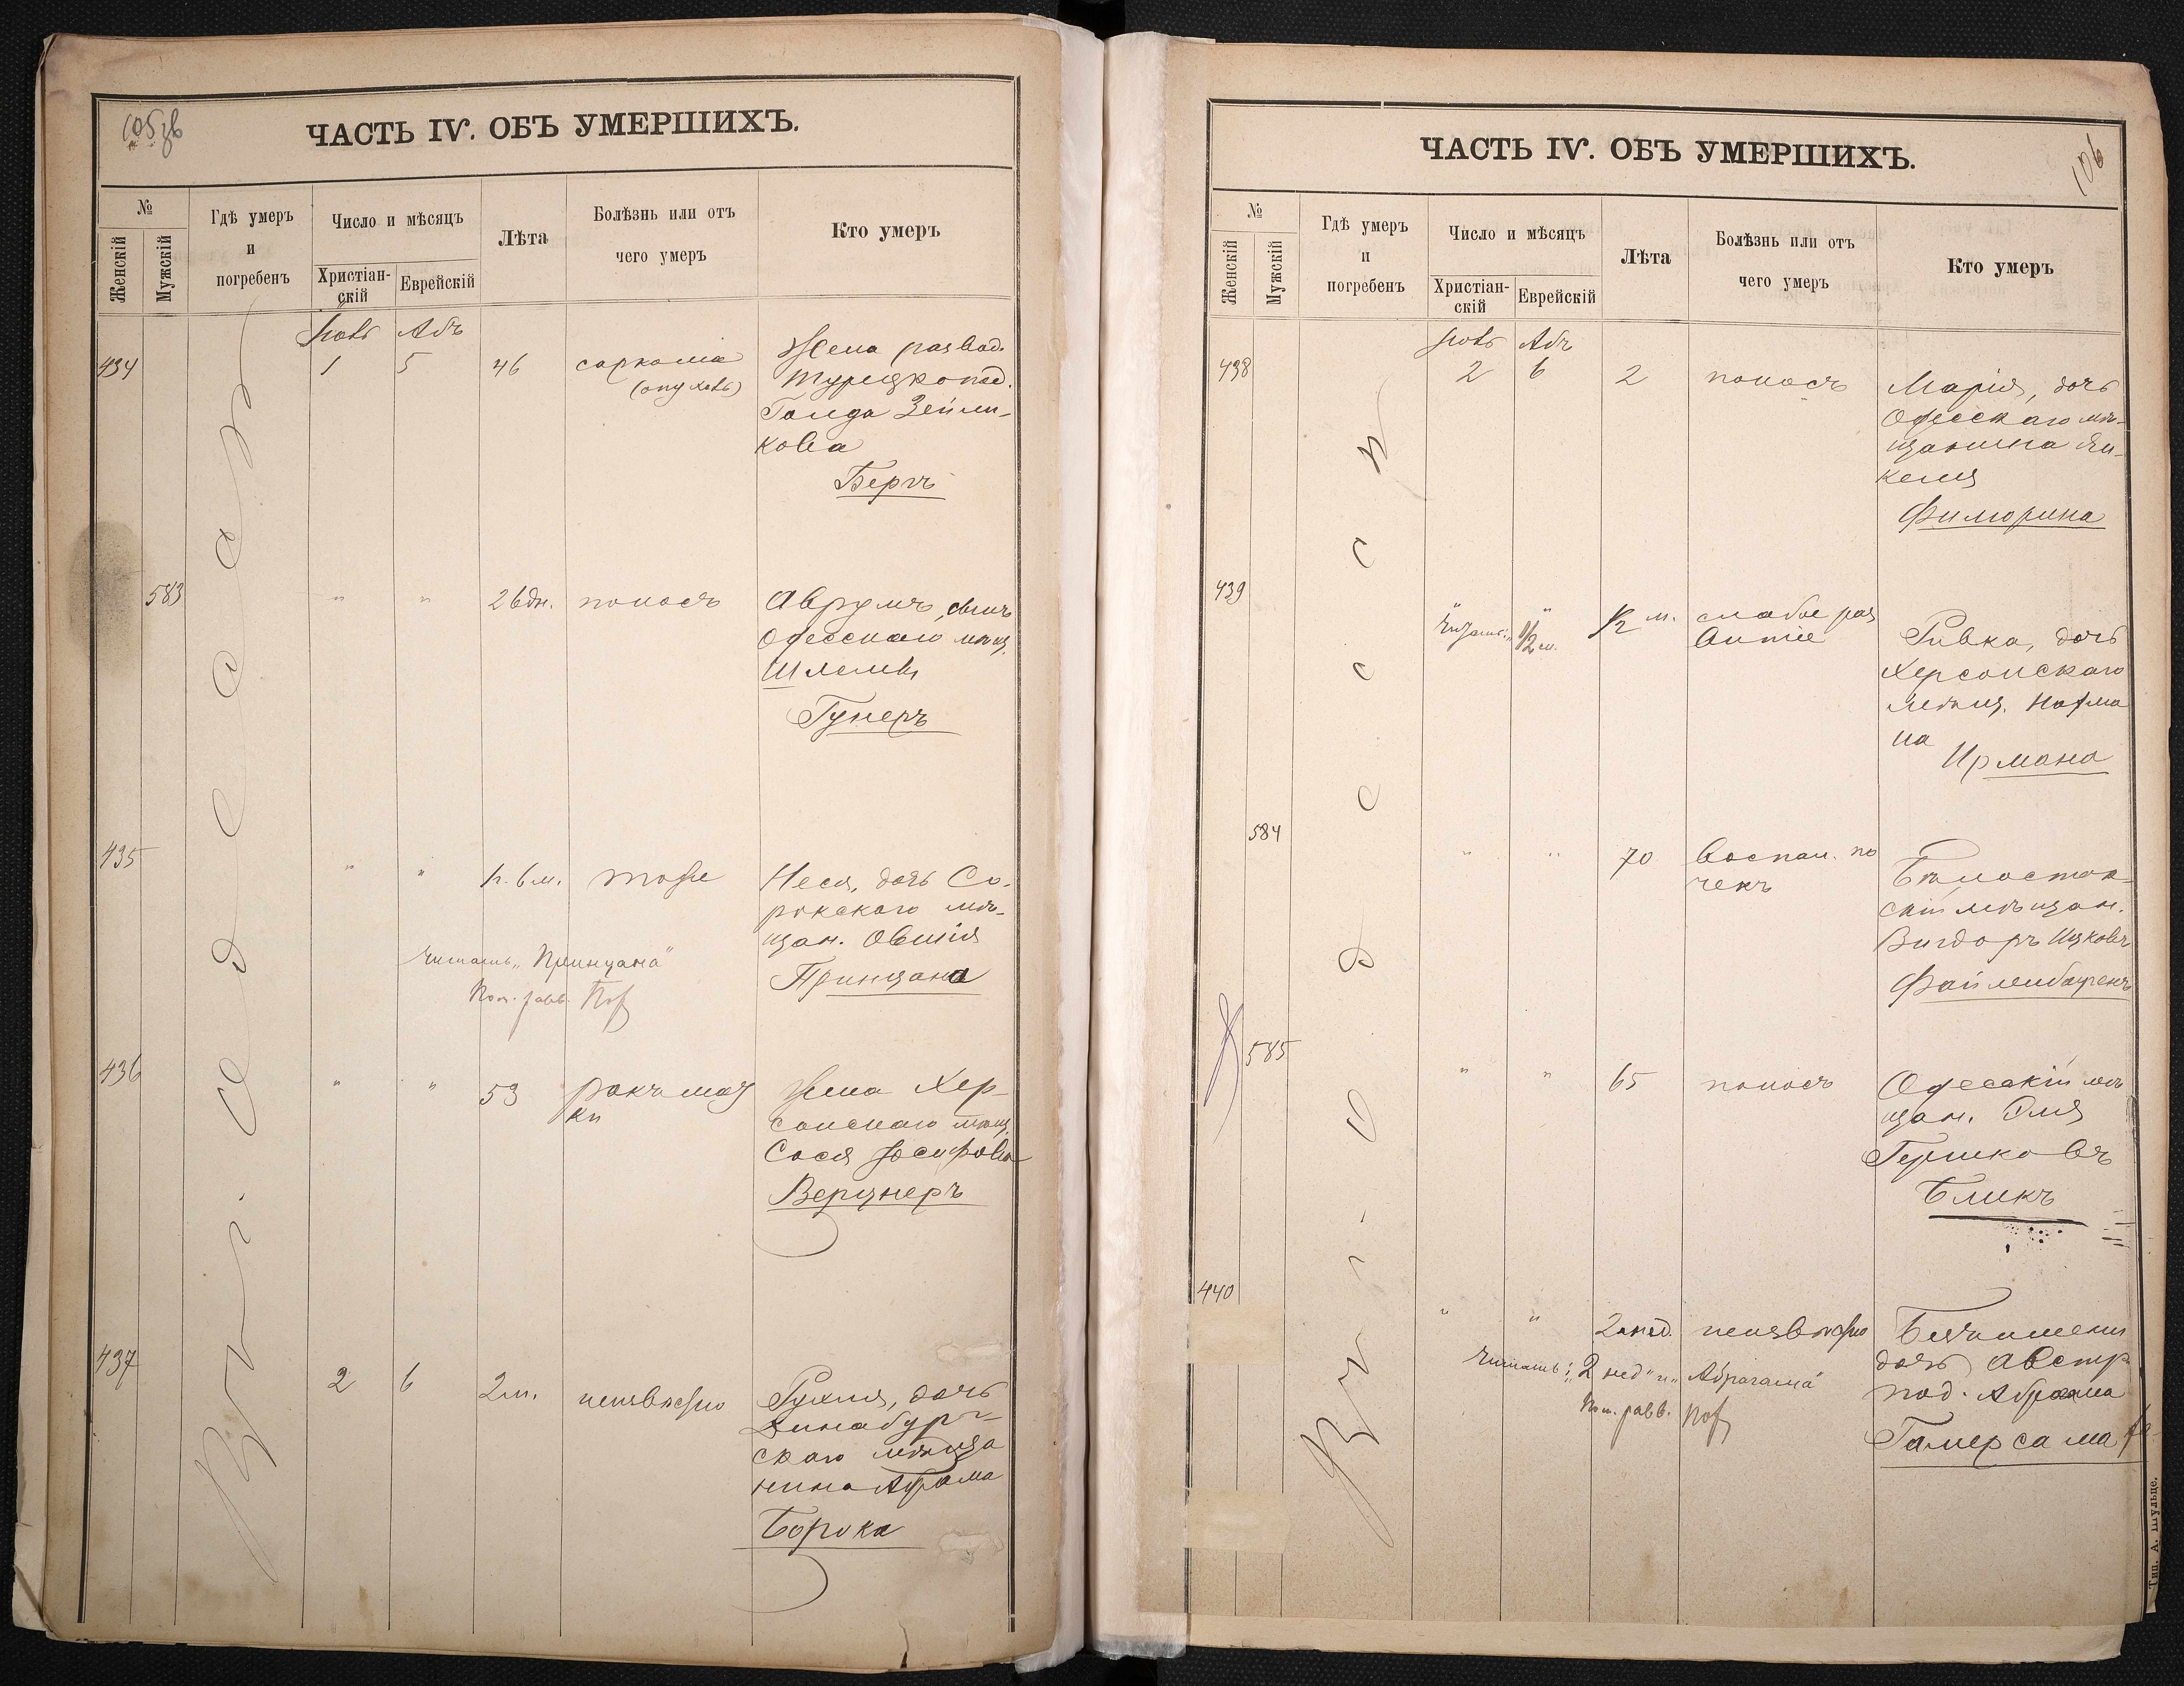 ЧАСТЬ IV. ОБЪ УМЕРШИХЪ.
№
Женскій
Мужскій
Гдѣ умеръ
и
погребенъ
Число и мѣсяцъ
Христіан-
скій
Еврейскій
Лѣта
Болѣзнь или отъ
чего умеръ
Кто умеръ
Въ г. Одессѣ
Абъ
434 1 5 46 саркома
(опухоль)
Жена
Турецкопод.
Голда Зейли-
кова
Бергъ
583 " " 26дн. поносъ
Аврумъ, сынъ
Одесскаго мѣщ.
Шлемы
Гунеръ
435 " " 1г. 6м. тоже
Неся, дочь Со-
рокскаго мѣ-
щан. Овшія
Принцана
Читать „Принцана"
Пом. равв.
436 " " 53 ракъ мат
ки
Жена Хер-
сонскаго мѣщ.
Сося Іосифова
Верцнеръ
437 2 6 2м. неизвѣстно
Рухля, дочь
Динабург-
скаго мѣща
нина Абрама
Борока
ЧАСТЬ IV. ОБЪ УМЕРШИХЪ.
106
№
Женскій
Мужскій
Гдѣ умеръ
и
погребенъ
Число и мѣсяцъ
Христіан-
скій
Еврейскій
Лѣта
Болѣзнь или отъ
чего умеръ
Кто умеръ
Въ г. Одессѣ
Абъ
438 2 6 2 поносъ
Марія, дочь
Одесскаго мѣ-
щанина Ян-
келя
Филюрина
439 " " ½ м. слабое раз
витіе
Читать: „½ м.
Ривка, дочь
Херсонскаго
мѣщ. Нахма
на
Ирмана
584 " " 70 воспал. по
чекъ
Бѣлосток-
скій мѣщан.
Вигдоръ Ицковъ
Файленбогенъ
585 " " 65 поносъ
Одесскій мѣ
щан. Эля
Гершковъ
Бликъ
440 " " 2 нед. неизвѣстно
дочь Австр.
под. Абрама
Читать: „2 нед" и „Абрагама"
Пом. равв.
Тип. А. Шульце.